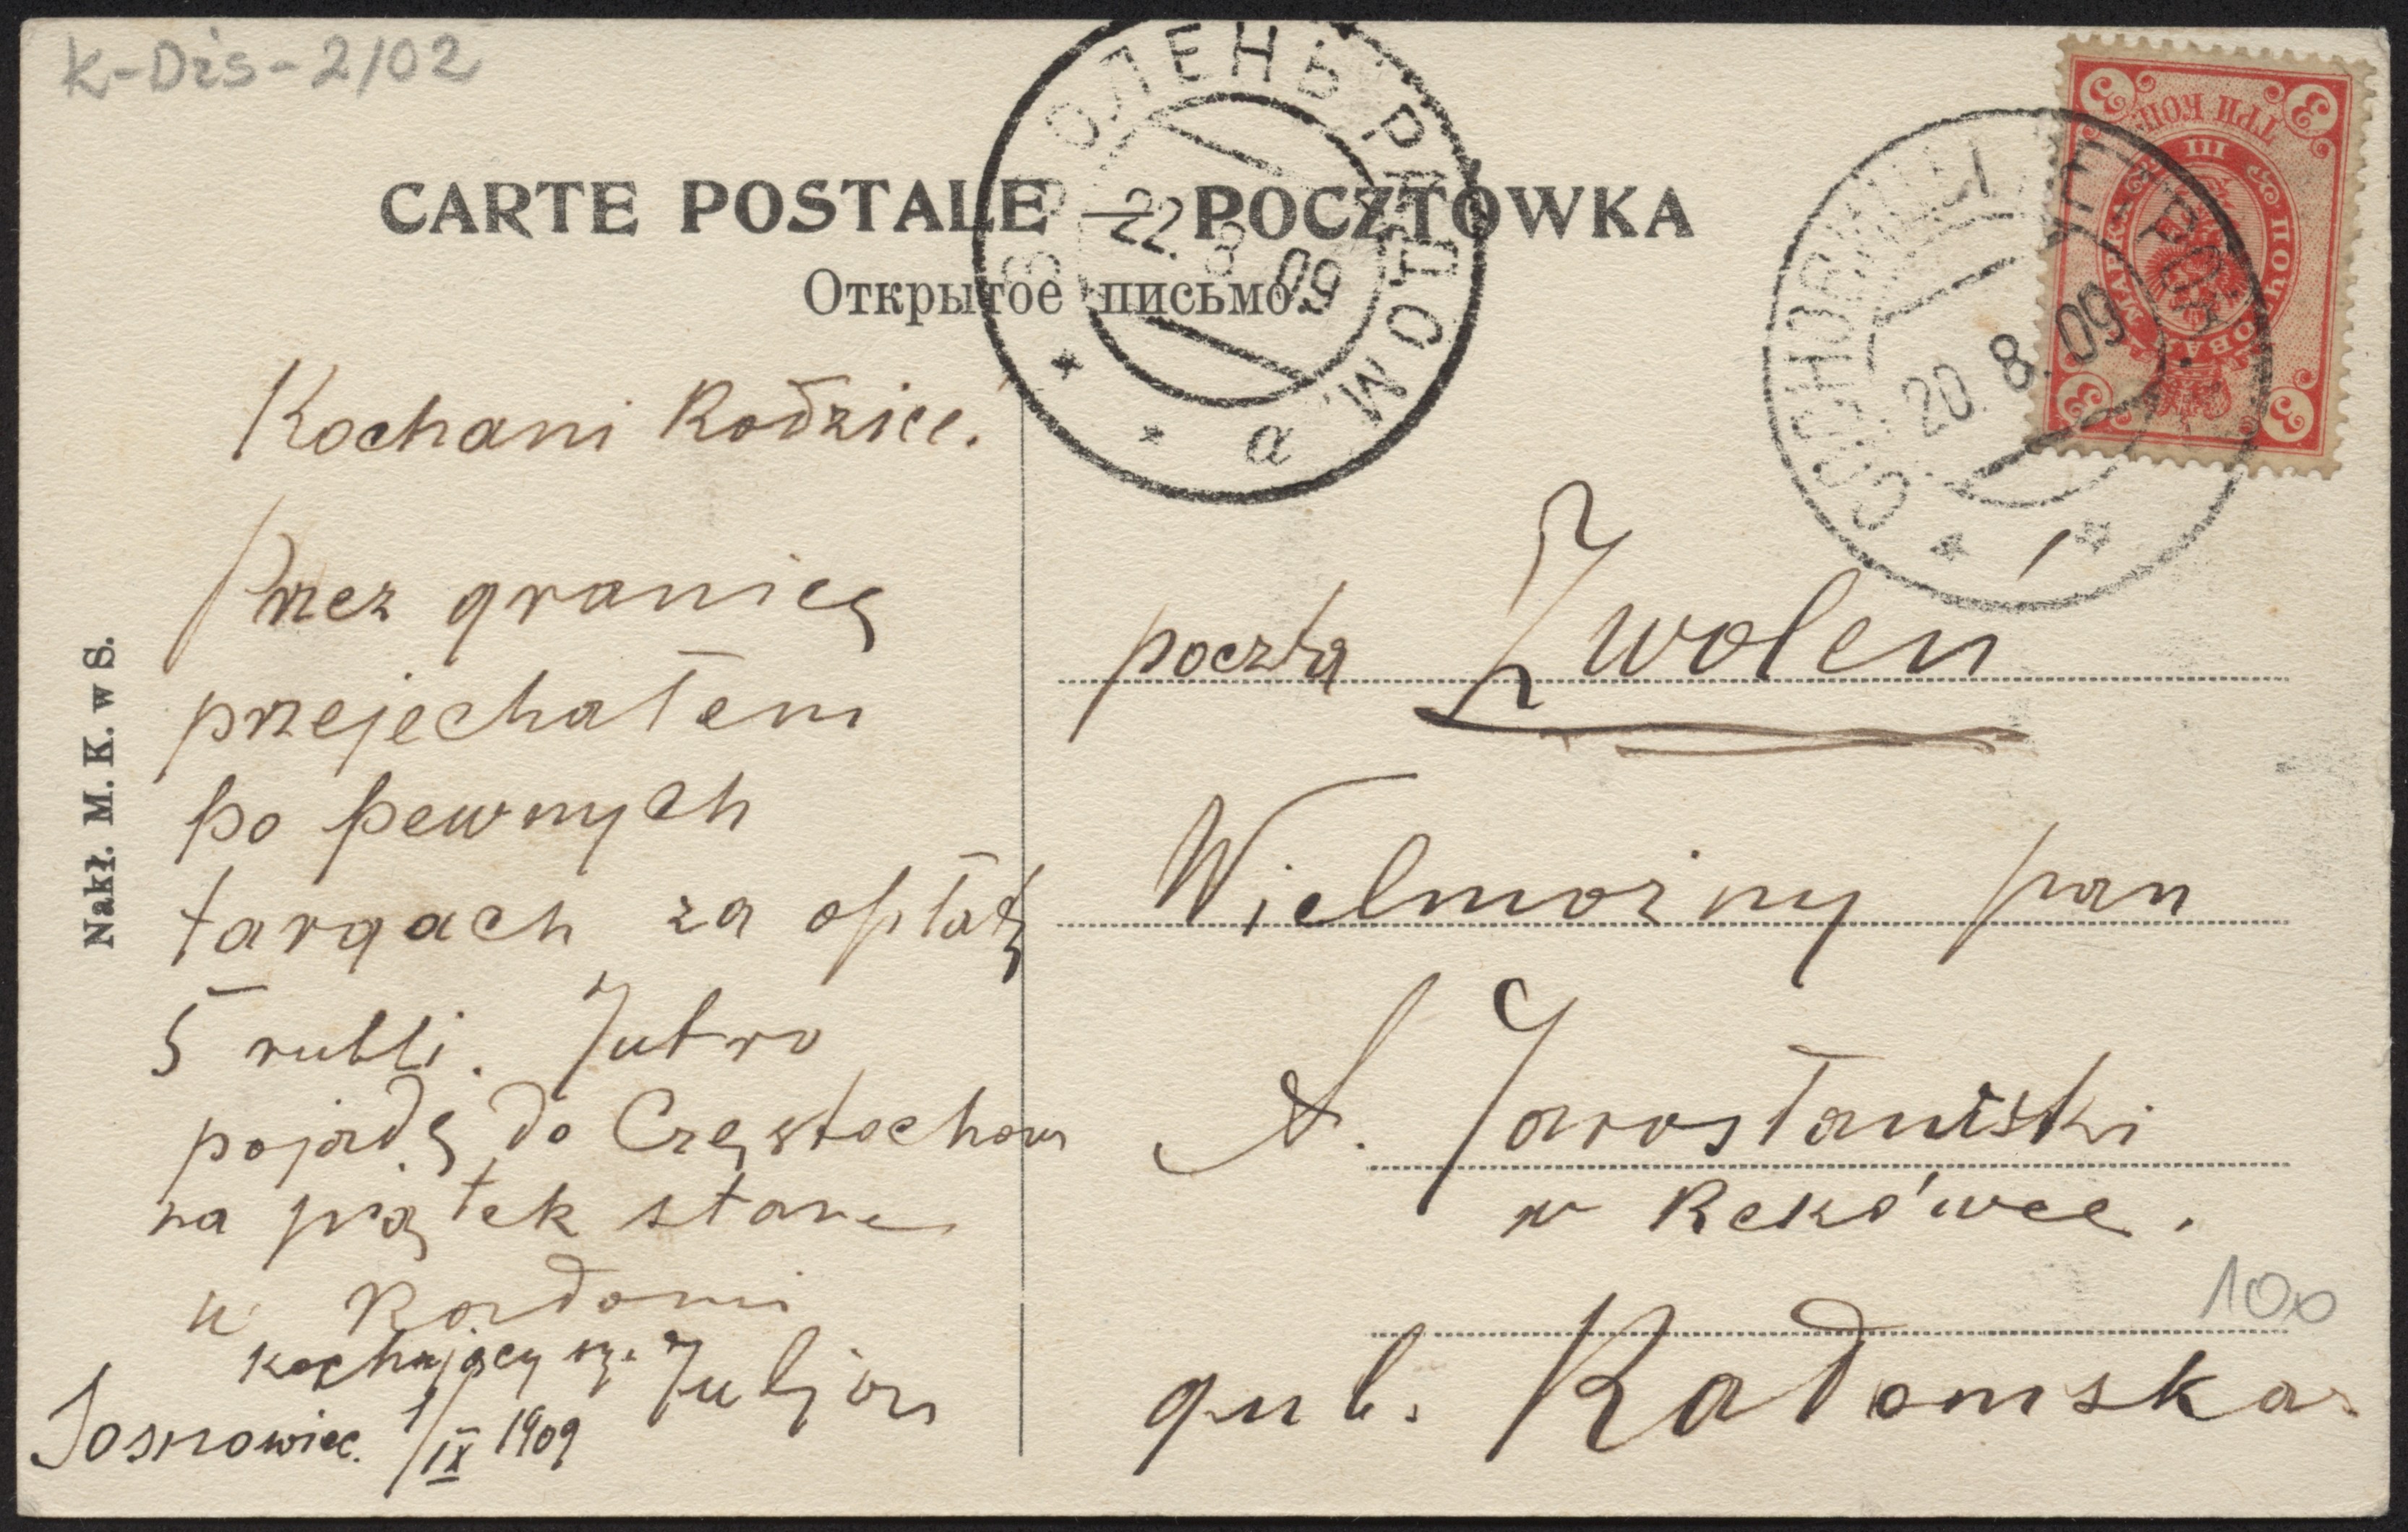 K-Dis-2/02
CARTE POSTALE — POCZTÓWKA
Открытое письмо.
ЗВОЛЕНЬ РАДОМ
22. 8 09
а
20. 8. 09
ТРИ КОП.
III
3 3 3 3
Kochani Rodzice!
Przez granicę
przejechałem
po pewnych
targach za opłatą
5 rubli. Jutro
pojadę do Częstochowy
na piątek stanę
w Radomiu
kochający Juljan
Sosnowiec. 1/IX 1909
Nakł. M. K. w S.
poczta Zwoleń
Wielmożny pan
A. Jarosławski
w Rekówce.
gub. Radomska.
100